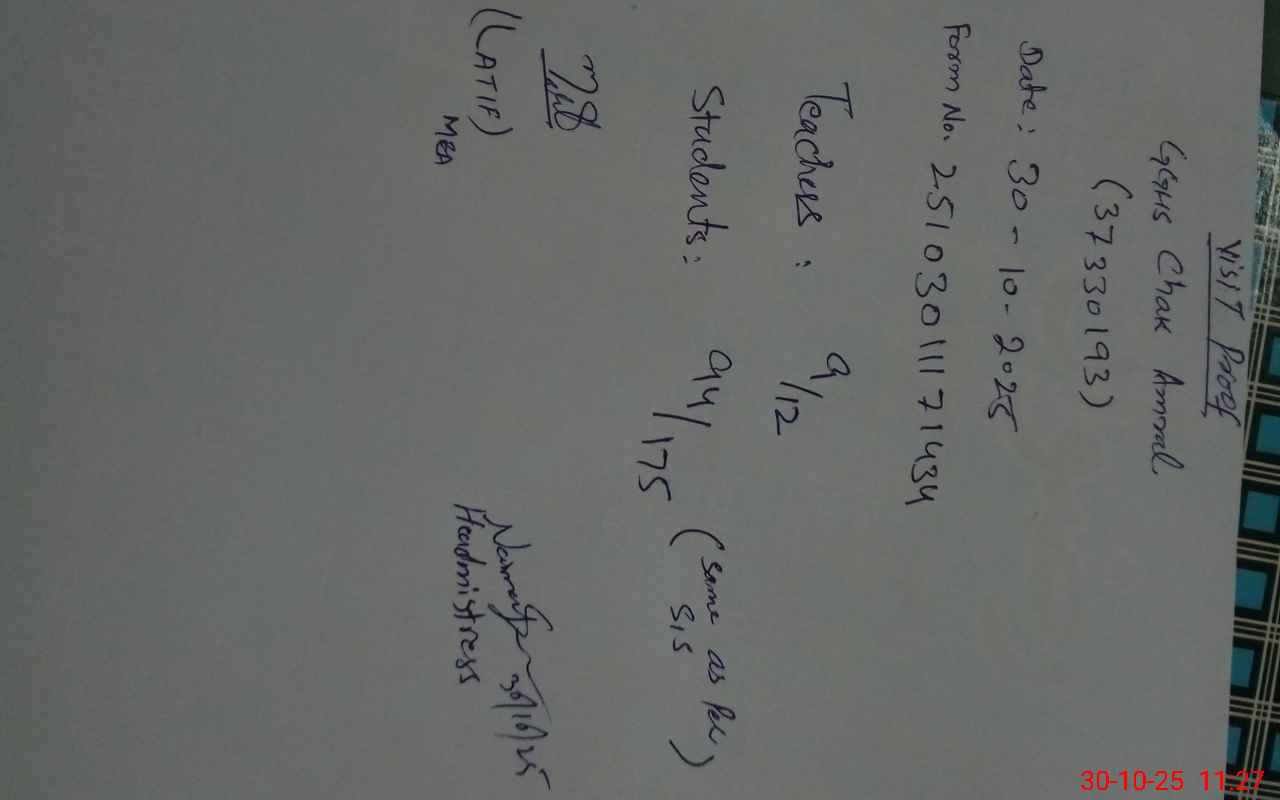 Visit Proof
GGHS Chak Amral
(37330193)
Date: 30-10-2025
Form No. 25103011171434
Teachers: 9/12
Students: 94/175 (same as per SIS)
(LATIF)
MEA
30/10/25
Headmistress
30-10-25 11:27